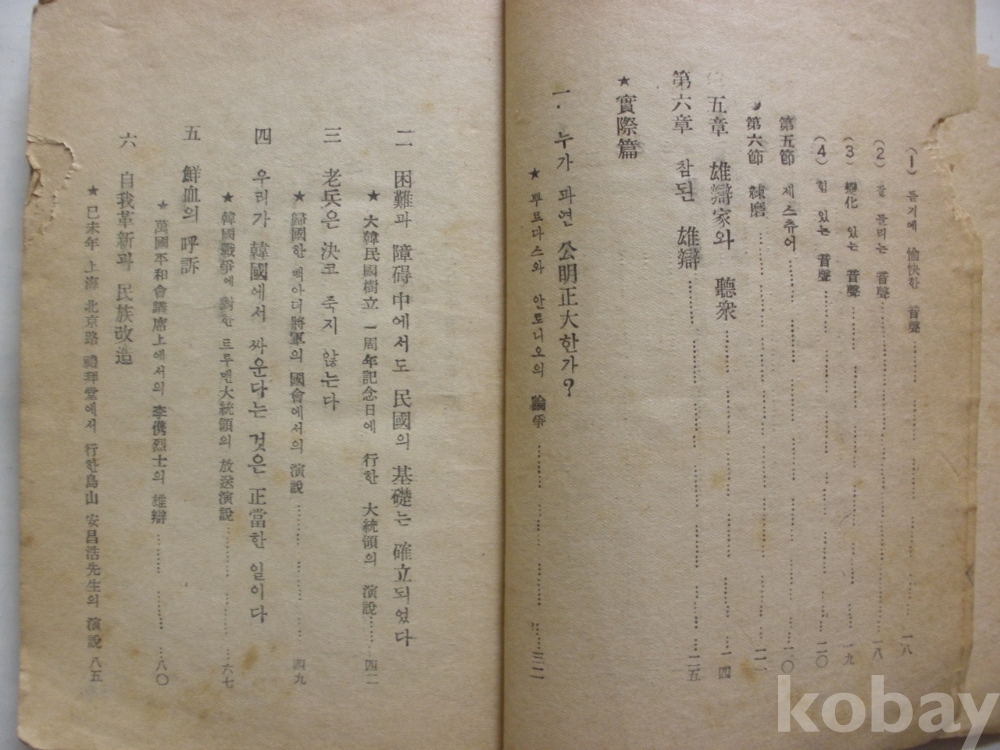 (1) 듣기에 愉快한 音聲……一八
(2) 잘 들리는 音聲……一八
(3) 變化 있는 音聲……一九
(4) 힘 있는 音聲……二〇
第五節 제스츄어……二〇
第六節 練磨……二二
五章 雄辯家와 聽衆……二四
第六章 참된 雄辯……二五
★ 實際篇
一. 누가 과연 公明正大한가?
★ 뿌르타스와 안토니오의 論爭……三二
二 困難과 障碍中에서도 民國의 基礎는 確立되였다
★ 大韓民國樹立 一周年記念日에 行한 大統領의 演說……四二
三 老兵은 決코 죽지 않는다
★ 歸國한 맥아더將軍의 國會에서의 演說……四九
四 우리가 韓國에서 싸운다는 것은 正當한 일이다
★ 韓國戰爭에 對한 트루맨大統領의 放送演說……六七
五 鮮血의 呼訴
★ 萬國平和會議席上에서의 李儁烈士의 雄辯……八〇
六 自我革新과 民族改造
★ 己未年 上海 北京路 禮拜堂에서 行한 島山 安昌浩先生의 演說 八五
kobay